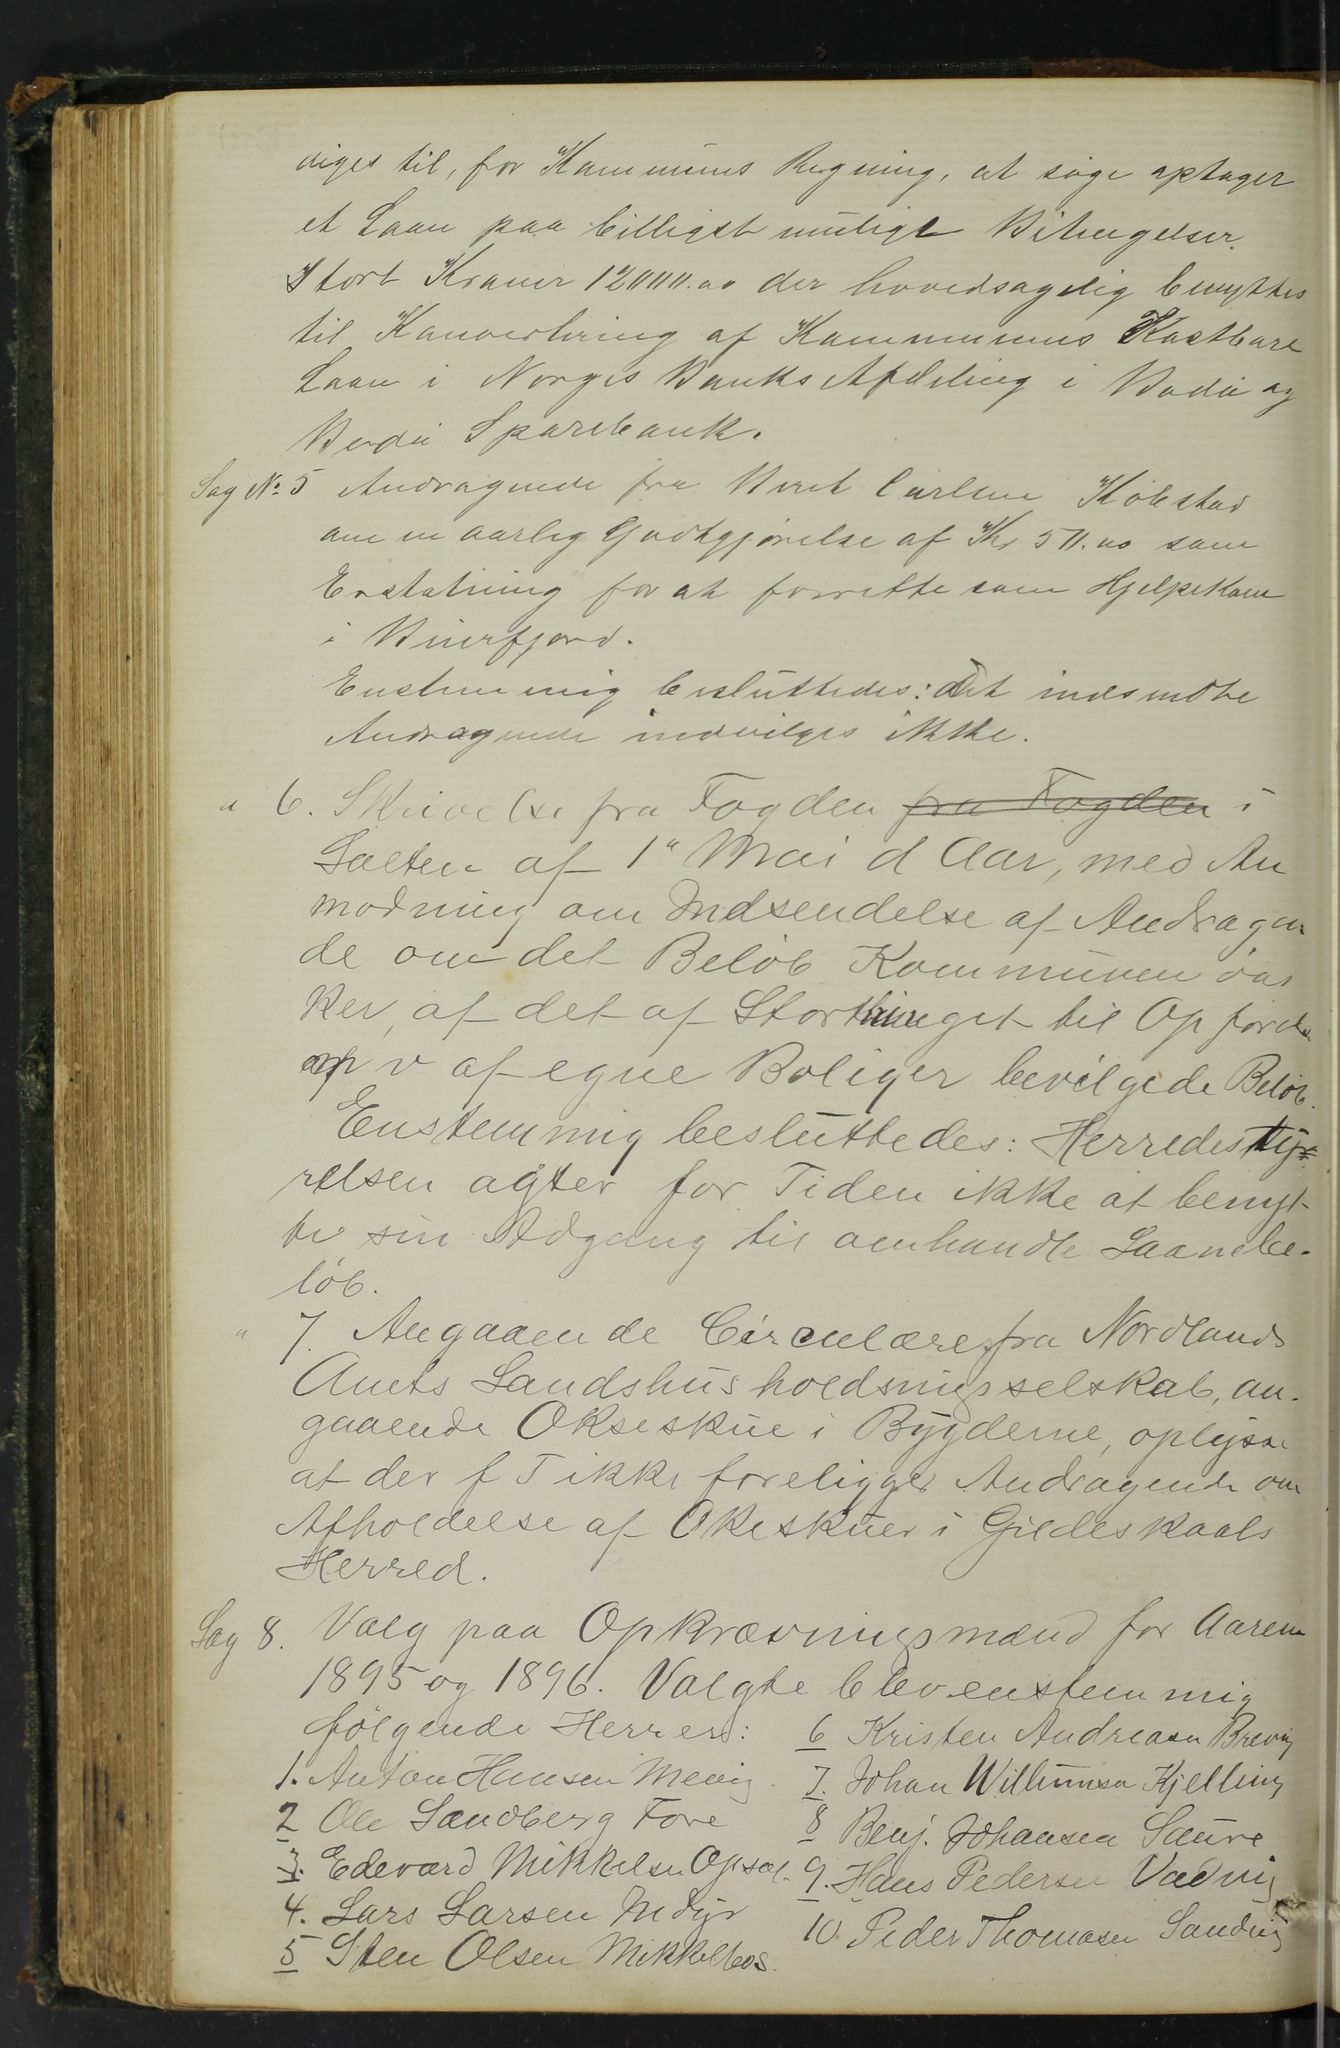 diges til, for Kommunens Regning, at søge optaget
et Laan paa billigst muligt Betingelser.
Stort Kroner 12000.00 der hovedsagelig benyttes
til Konvertering af Kommunens Kostbare
Laan i Norges Banks Afdeling i Bodø og
Bodø Sparebank.
Sag No. 5 Andragende fra Berit Carlsen Kobstad
om en aarlig Godtgjørelse af Kr 50.00 som
Erstatning for at forrette som Hjelpekone
i Bierfjord.
Enstemmig besluttedes: det indsendte
Andragende indvilges ikke.
" 6. Skrivelse fra Fogden fra Fogden i
Salten af 1" Mai d Aar, med An
modning om Indsendelse af Andragen
de om det Beløb Kommunen øns
ker, af det af Storthinget til Opførelse
op v af egne Boliger bevilgede Beløb.
Enstemmig besluttedes: Herredssty-
relsen agter for Tiden ikke at benyt-
te sin Adgang til omhandle Laanebe-
løb.
" 7. Angaaende Circulære fra Nordlands
Amts Landshusholdningsselskab, an-
gaaende Okseskue i Bygderne, oplyses
at der f T ikke foreligger Andragende om
Afholdelse af Okeskuer i Gildeskaals
Herred.
Sag 8. Valg paa Opkrævningsmænd for Aarene
1895 og 1896. Valgte blev enstemmig
følgende Herrer:
1. Anton Hansen Mevig
2 Ole Sandberg Fore
3. Edevard Mikkelsen Opsal
4. Lars Larsen Indyr
5 Sten Olsen Mikkelbos.
6 Kristen Andreasen Brevig
7. Johan Willumsen Kjelling
8 Benj. Johansen Saura
9. Hans Pedersen Vadvig
10 Peder Thomasen Sandvig